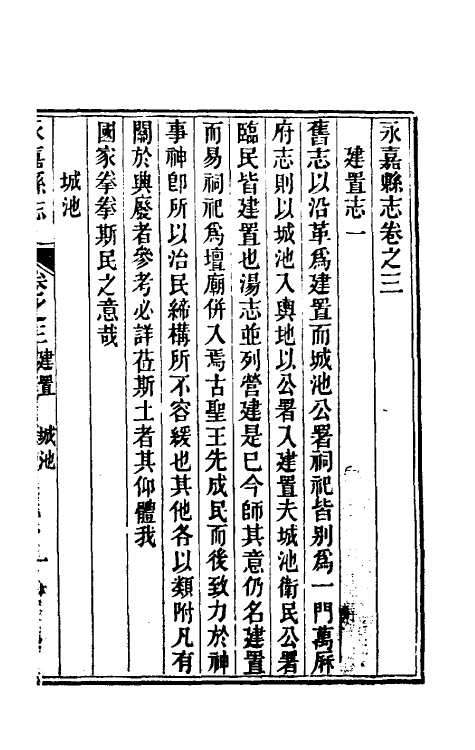 永嘉縣志卷之三
建置志一
舊志以沿革爲建置而城池公署祠祀皆別爲一門萬厤
府志則以城池入輿地以公署入建置夫城池衛民公署
臨民皆建置也湯志並列營建是已今師其意仍名建置
而易祠祀爲壇廟併入焉古聖王先成民而後致力於神
事神卽所以治民締構所不容緩也其他各以類附凡有
關於興廢者參考必詳莅斯土者其仰體我
國家拳拳斯民之意哉
城池
永嘉縣志
卷之三建置 城池